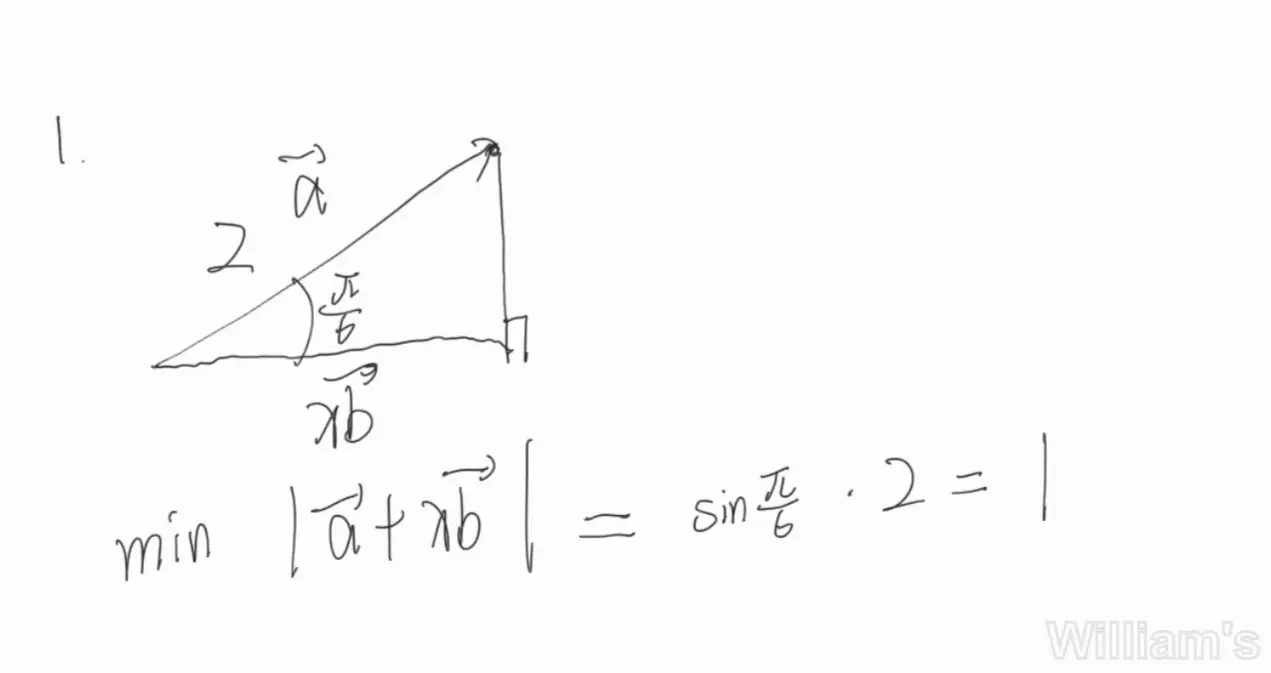 1.
a⃗
2
π/6
xb⃗
min |a⃗ + xb⃗| = sin π/6 · 2 = 1
William's